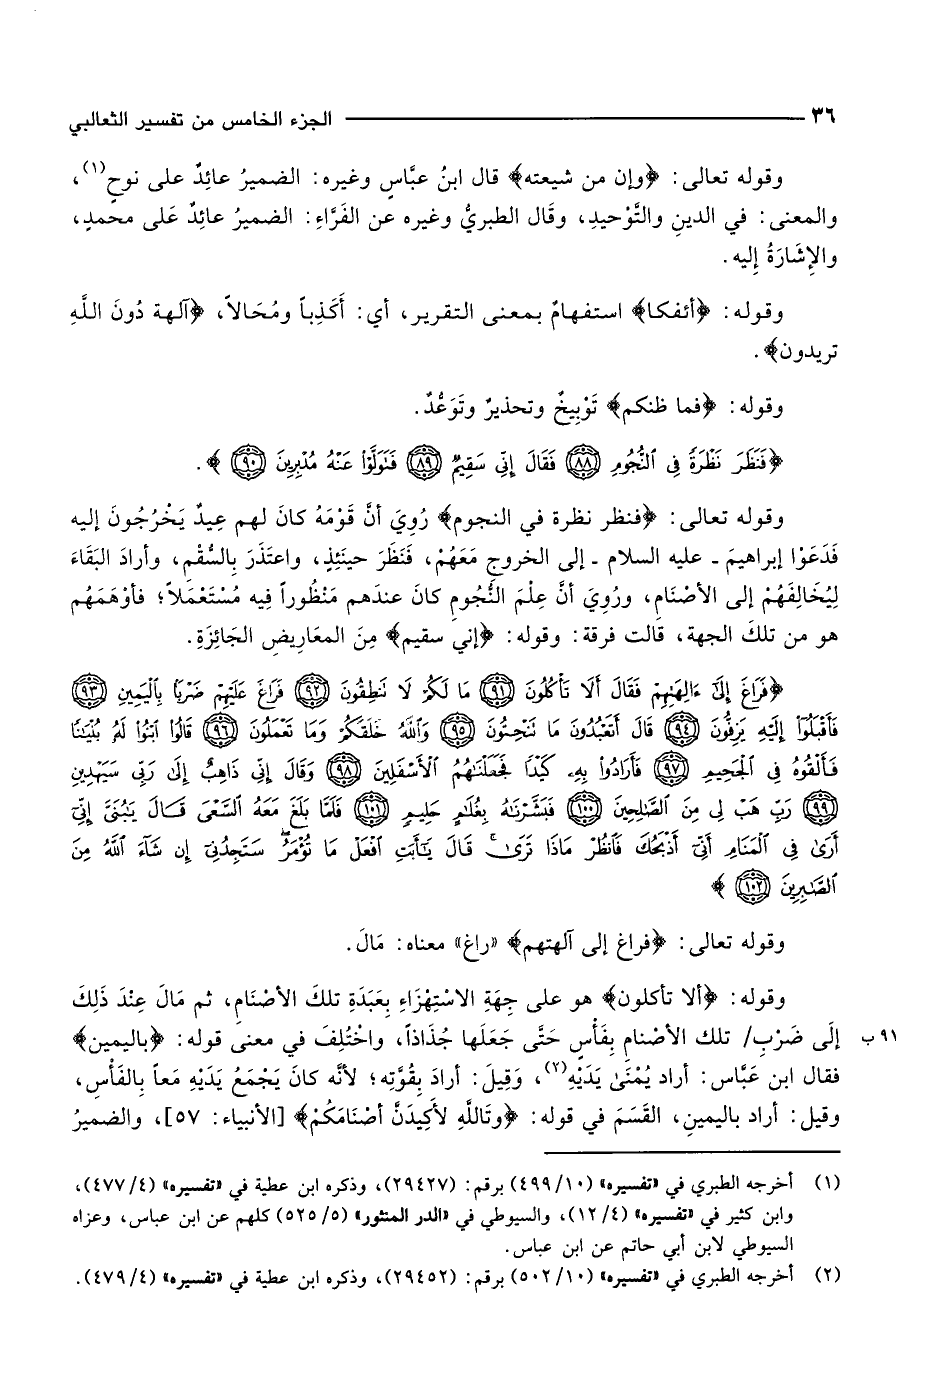 ٣٦ ـــــــ الجزء الخامس من تفسير الثعالبي
وقوله تعالى: ﴿وإن من شيعته﴾ قال ابنُ عبَّاسٍ وغيره: الضميرُ عائِدٌ على نوحٍ(١)،
والمعنى: في الدينِ والتَّوْحيدِ، وقَال الطبريُّ وغيره عن الفَرَّاءِ: الضميرُ عائِدٌ عَلى محمدٍ،
والإشَارَةُ إليه.
وقوله: ﴿أئفكا﴾ استفهامٌ بمعنى التقرير، أي: أَكَذِباً ومُحَالاً، ﴿آلهة دُونَ اللَّهِ
تريدون﴾.
وقوله: ﴿فما ظنكم﴾ تَوْبِيخٌ وتحذيرٌ وتَوَعُّدٌ.
﴿فَنَظَرَ نَظْرَةً فِى ٱلنُّجُومِ ﴿٨٨﴾ فَقَالَ إِنِّى سَقِيمٌ ﴿٨٩﴾ فَنَوَلَّوْا۟ عَنْهُ مُدْبِرِينَ ﴿٩٠﴾ ﴾.
وقوله تعالى: ﴿فنظر نظرة في النجوم﴾ رُوِيَ أنَّ قَوْمَهُ كانَ لهم عِيدٌ يَخْرُجُونَ إليه
فَدَعَوْا إبراهيمَ ـ عليه السلام ـ إلى الخروجِ مَعَهُمْ، فَنَظَرَ حينَئِذٍ، واعتَذَرَ بِالسُّقْمِ، وأرادَ البَقَاءَ
لِيُخَالِفَهُمْ إلى الأصْنَامِ، ورُوِيَ أنَّ عِلْمَ النُّجُومِ كانَ عندَهم مَنْظُوراً فِيه مُسْتَعْمَلاً؛ فأوْهَمَهُم
هو من تلكَ الجهة، قالت فرقة: وقوله: ﴿إني سقيم﴾ مِنَ المعَاريضِ الجَائِزَةِ.
﴿فَرَاغَ إِلَىٰٓ ءَالِهَتِهِمْ فَقَالَ أَلَا تَأْكُلُونَ ﴿٩١﴾ مَا لَكُمْ لَا نَنطِقُونَ ﴿٩٢﴾ فَرَاغَ عَلَيْهِمْ ضَرْبًۢا بِٱلْيَمِينِ ﴿٩٣﴾
فَأَقْبَلُوٓا۟ إِلَيْهِ يَزِفُّونَ ﴿٩٤﴾ قَالَ أَتَعْبُدُونَ مَا نَنْحِتُونَ ﴿٩٥﴾ وَٱللَّهُ خَلَقَكُمْ وَمَا تَعْمَلُونَ ﴿٩٦﴾ قَالُوا۟ ٱبْنُوا۟ لَهُۥ بُنْيَٰنًا
فَأَلْقُوهُ فِى ٱلْجَحِيمِ ﴿٩٧﴾ فَأَرَادُوا۟ بِهِۦ كَيْدًا فَجَعَلْنَٰهُمُ ٱلْأَسْفَلِينَ ﴿٩٨﴾ وَقَالَ إِنِّى ذَاهِبٌ إِلَىٰ رَبِّى سَيَهْدِينِ
﴿٩٩﴾ رَبِّ هَبْ لِى مِنَ ٱلصَّٰلِحِينَ ﴿١٠٠﴾ فَبَشَّرْنَٰهُ بِغُلَٰمٍ حَلِيمٍ ﴿١٠١﴾ فَلَمَّا بَلَغَ مَعَهُ ٱلسَّعْىَ قَالَ يَٰبُنَىَّ إِنِّىٓ
أَرَىٰ فِى ٱلْمَنَامِ أَنِّىٓ أَذْبَحُكَ فَٱنظُرْ مَاذَا تَرَىٰ ۚ قَالَ يَٰٓأَبَتِ ٱفْعَلْ مَا تُؤْمَرُ ۖ سَتَجِدُنِىٓ إِن شَآءَ ٱللَّهُ مِنَ
ٱلصَّٰبِرِينَ ﴿١٠٢﴾ ﴾
وقوله تعالى: ﴿فراغ إلى آلهتهم﴾ «راغ» معناه: مَالَ.
وقوله: ﴿ألا تأكلون﴾ هو على جِهَةِ الاسْتِهْزَاءِ بِعَبَدَةِ تلكَ الأصْنَامِ، ثم مَالَ عِنْدَ ذَلِكَ
٩١ ب إلَى ضَرْبِ/ تلك الأصْنامِ بِفَأْسٍ حَتَّى جَعَلَها جُذَاذاً، واخْتُلِفَ في معنى قوله: ﴿باليمين﴾
فقال ابن عَبَّاس: أراد يُمْنَىٰ يَدَيْهِ(٢)، وَقِيلَ: أرادَ بِقُوَّتِه؛ لأنَّه كانَ يَجْمَعُ يَدَيْهِ مَعاً بِالفَأْسِ،
وقيل: أراد باليمينِ، القَسَمَ في قوله: ﴿وتَاللَّهِ لأَكِيدَنَّ أصْنَامَكُمْ﴾ [الأنبياء: ٥٧]، والضميرُ
(١) أخرجه الطبري في «تفسيره» (٤٩٩/١٠) برقم: (٢٩٤٢٧)، وذكره ابن عطية في «تفسيره» (٤٧٧/٤)،
وابن كثير في «تفسيره» (١٢/٤)، والسيوطي في «الدر المنثور» (٥٢٥/٥) كلهم عن ابن عباس، وعزاه
السيوطي لابن أبي حاتم عن ابن عباس.
(٢) أخرجه الطبري في «تفسيره» (٥٠٢/١٠) برقم: (٢٩٤٥٢)، وذكره ابن عطية في «تفسيره» (٤٧٩/٤).